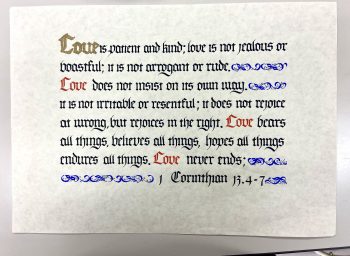 Love is patient and kind; love is not jealous or
boastful; it is not arrogant or rude.
Love does not insist on its own way.
it is not irritable or resentful; it does not rejoice
at wrong, but rejoices in the right. Love bears
all things, believes all things, hopes all things
endures all things. Love never ends;
1 Corinthian 13.4-7